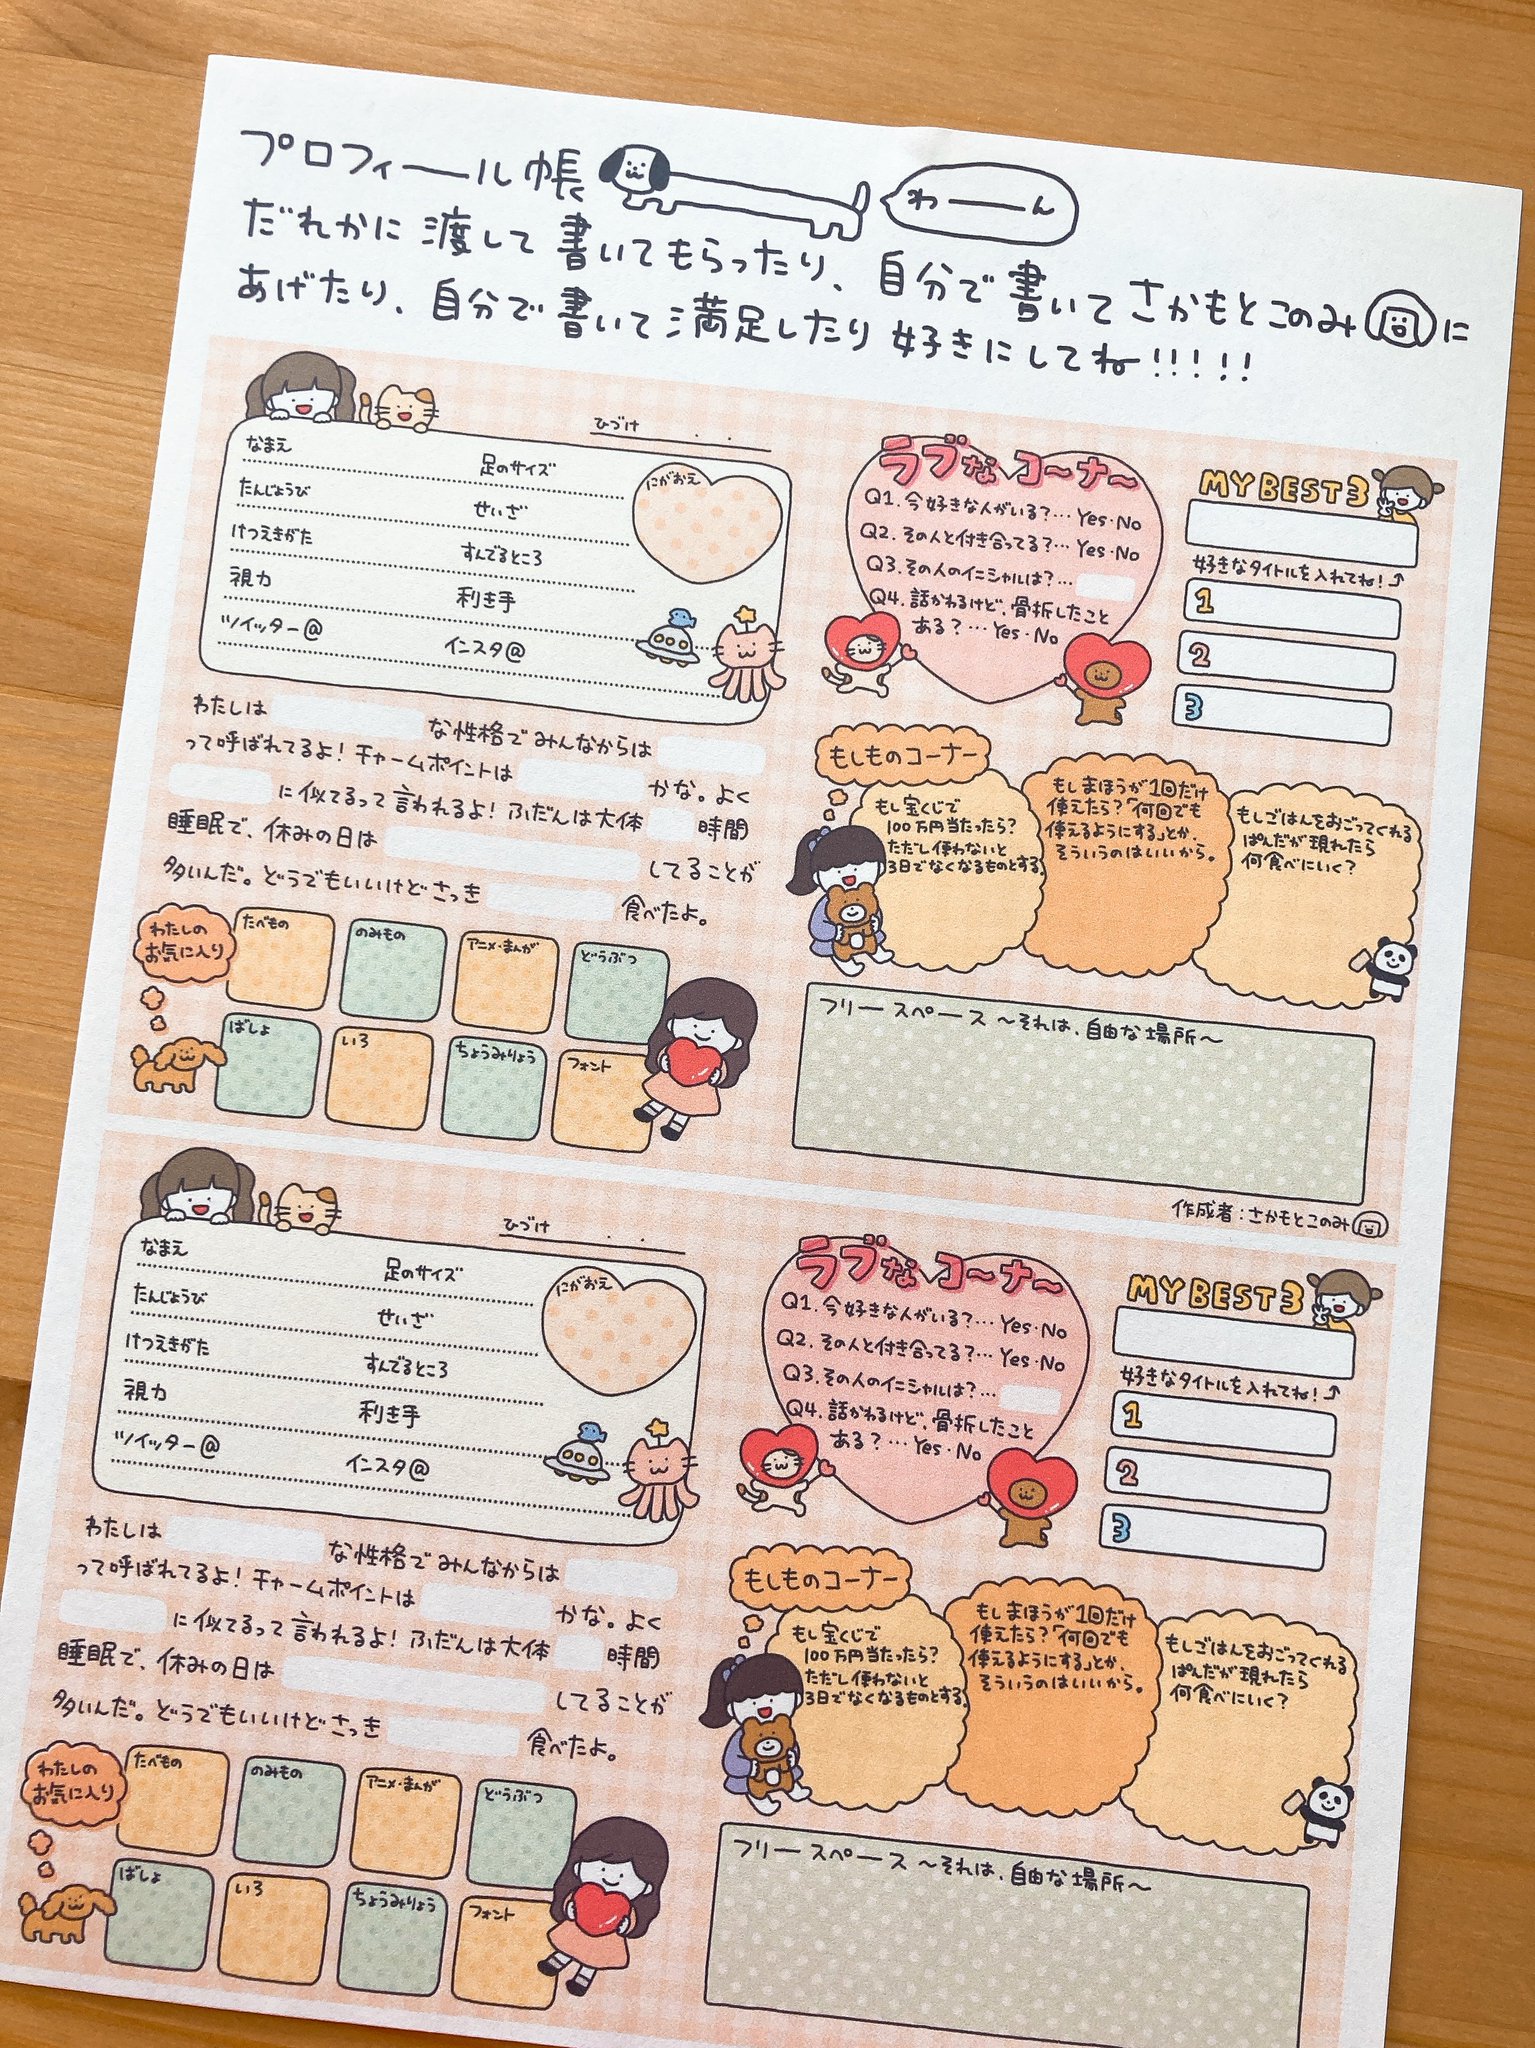 プロフィール帳
わーん
だれかに渡して書いてもらったり、自分で書いてさかもとこのみに
あげたり、自分で書いて満足したり好きにしてね!!!!!
ひづけ . .
なまえ 足のサイズ
たんじょうび せいざ
けつえきがた すんでるところ
視力 利き手
ツイッター@ インスタ@
にがおえ
わたしは な性格でみんなからは
って呼ばれてるよ!チャームポイントは かな。よく
に似てるって言われるよ!ふだんは大体 時間
睡眠で、休みの日は してることが
多いんだ。どうでもいいけどさっき 食べたよ。
わたしの
お気に入り
たべもの
のみもの
アニメ・まんが
どうぶつ
ばしょ
いろ
ちょうみりょう
フォント
ラブなコーナー
Q1.今好きな人がいる?…Yes・No
Q2.その人と付き合ってる?…Yes・No
Q3.その人のイニシャルは?…
Q4.話かわるけど、骨折したこと
ある?…Yes・No
MY BEST 3
好きなタイトルを入れてね!⤴
1
2
3
もしものコーナー
もし宝くじで
100万円当たったら?
ただし使わないと
3日でなくなるものとする。
もしまほうが1回だけ
使えたら?「何回でも
使えるようにする」とか、
そういうのはいいから。
もしごはんをおごってくれる
ぱんだが現れたら
何食べにいく?
フリースペース〜それは、自由な場所〜
作成者:さかもとこのみ
ひづけ . .
なまえ 足のサイズ
たんじょうび せいざ
けつえきがた すんでるところ
視力 利き手
ツイッター@ インスタ@
にがおえ
わたしは な性格でみんなからは
って呼ばれてるよ!チャームポイントは かな。よく
に似てるって言われるよ!ふだんは大体 時間
睡眠で、休みの日は してることが
多いんだ。どうでもいいけどさっき 食べたよ。
わたしの
お気に入り
たべもの
のみもの
アニメ・まんが
どうぶつ
ばしょ
いろ
ちょうみりょう
フォント
ラブなコーナー
Q1.今好きな人がいる?…Yes・No
Q2.その人と付き合ってる?…Yes・No
Q3.その人のイニシャルは?…
Q4.話かわるけど、骨折したこと
ある?…Yes・No
MY BEST 3
好きなタイトルを入れてね!⤴
1
2
3
もしものコーナー
もし宝くじで
100万円当たったら?
ただし使わないと
3日でなくなるものとする。
もしまほうが1回だけ
使えたら?「何回でも
使えるようにする」とか、
そういうのはいいから。
もしごはんをおごってくれる
ぱんだが現れたら
何食べにいく?
フリースペース〜それは、自由な場所〜